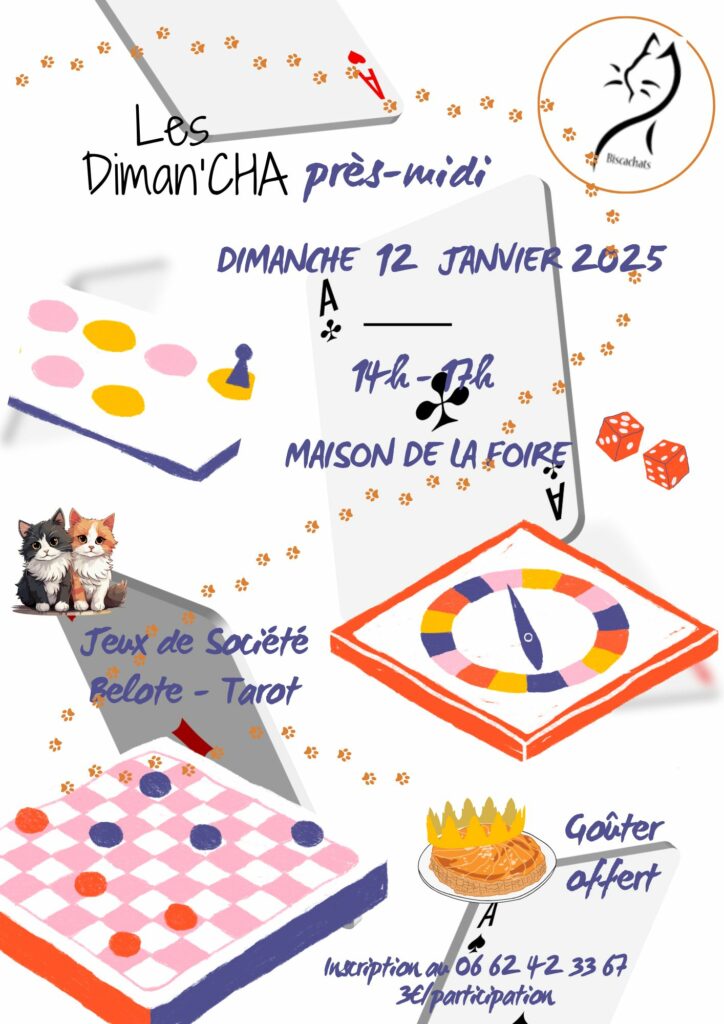 A
Les
Diman'CHA près-midi
Biscachats
DIMANCHE 12 JANVIER 2025
A
14h - 17h
MAISON DE LA FOIRE
A
Jeux de Société
Belote - Tarot
Goûter
offert
A
Inscription au 06 62 42 33 67
3€/participation